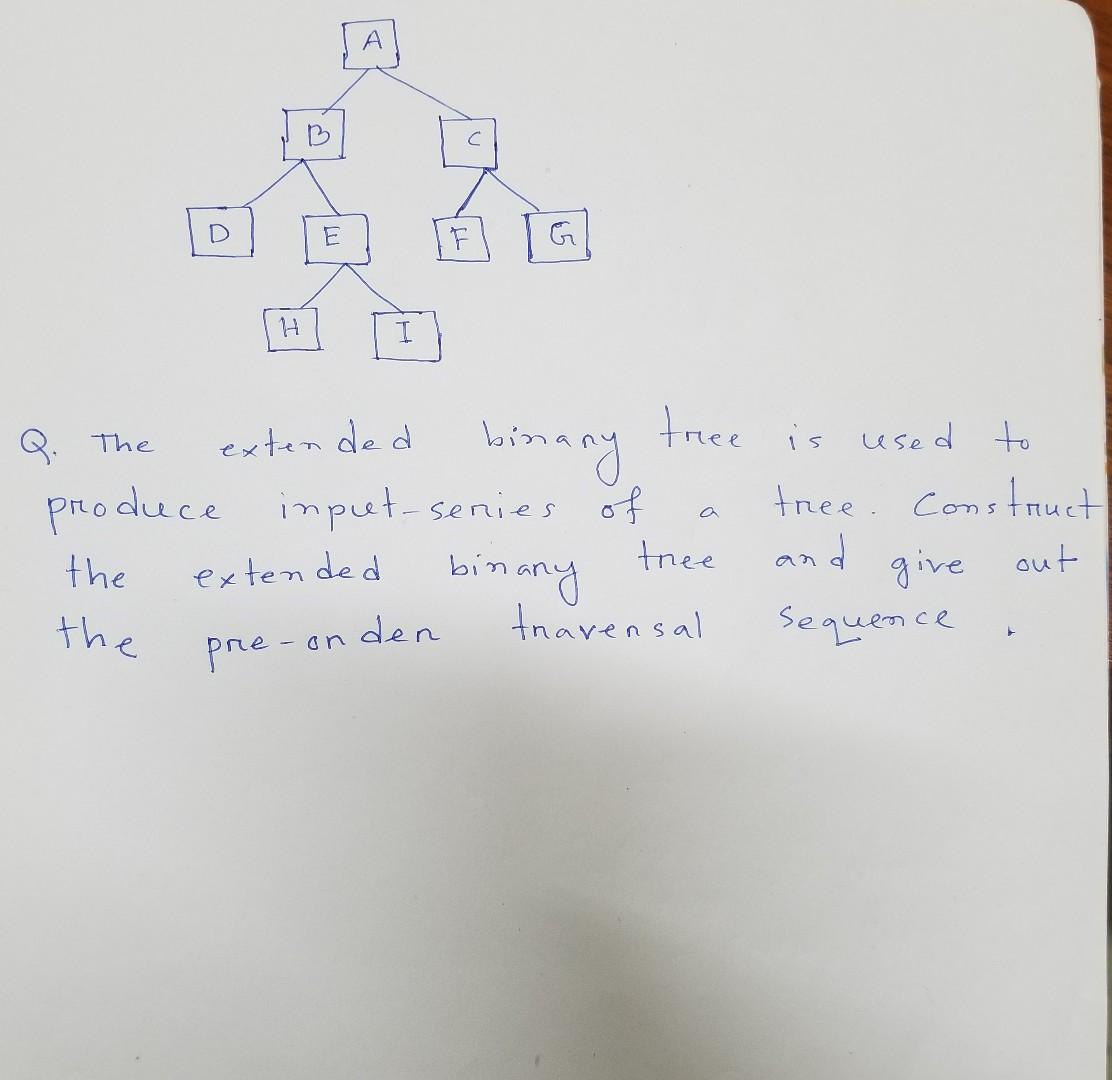 A
B C
D E F G
H I
Q. The extended binary tree is used to
produce input-series of a tree. Construct
the extended binary tree and give out
the pre-order traversal sequence.